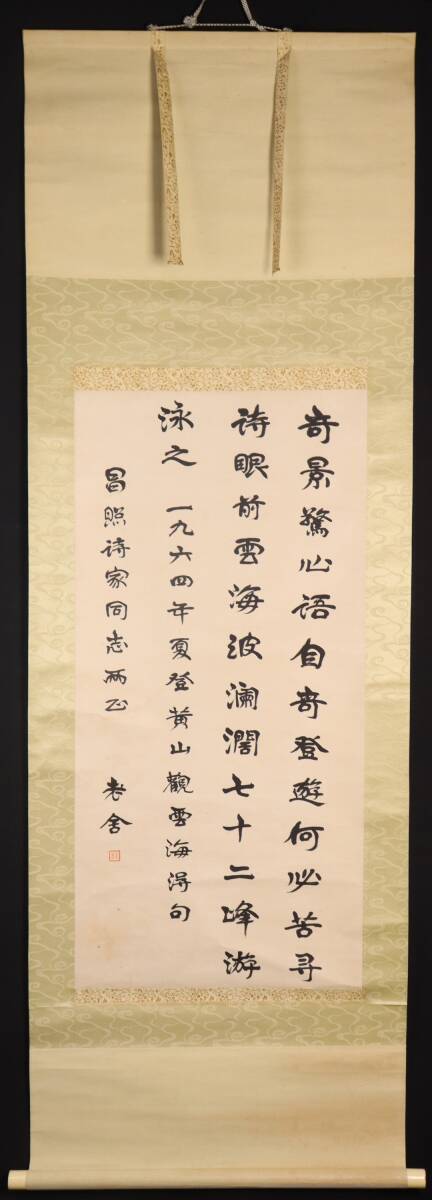 奇景驚心语自奇登遊何必苦寻
诗眼前雲海波澜濶七十二峰游
泳之 一九六四年夏登黄山觀雲海得句
昌照诗家同志两正
老舍